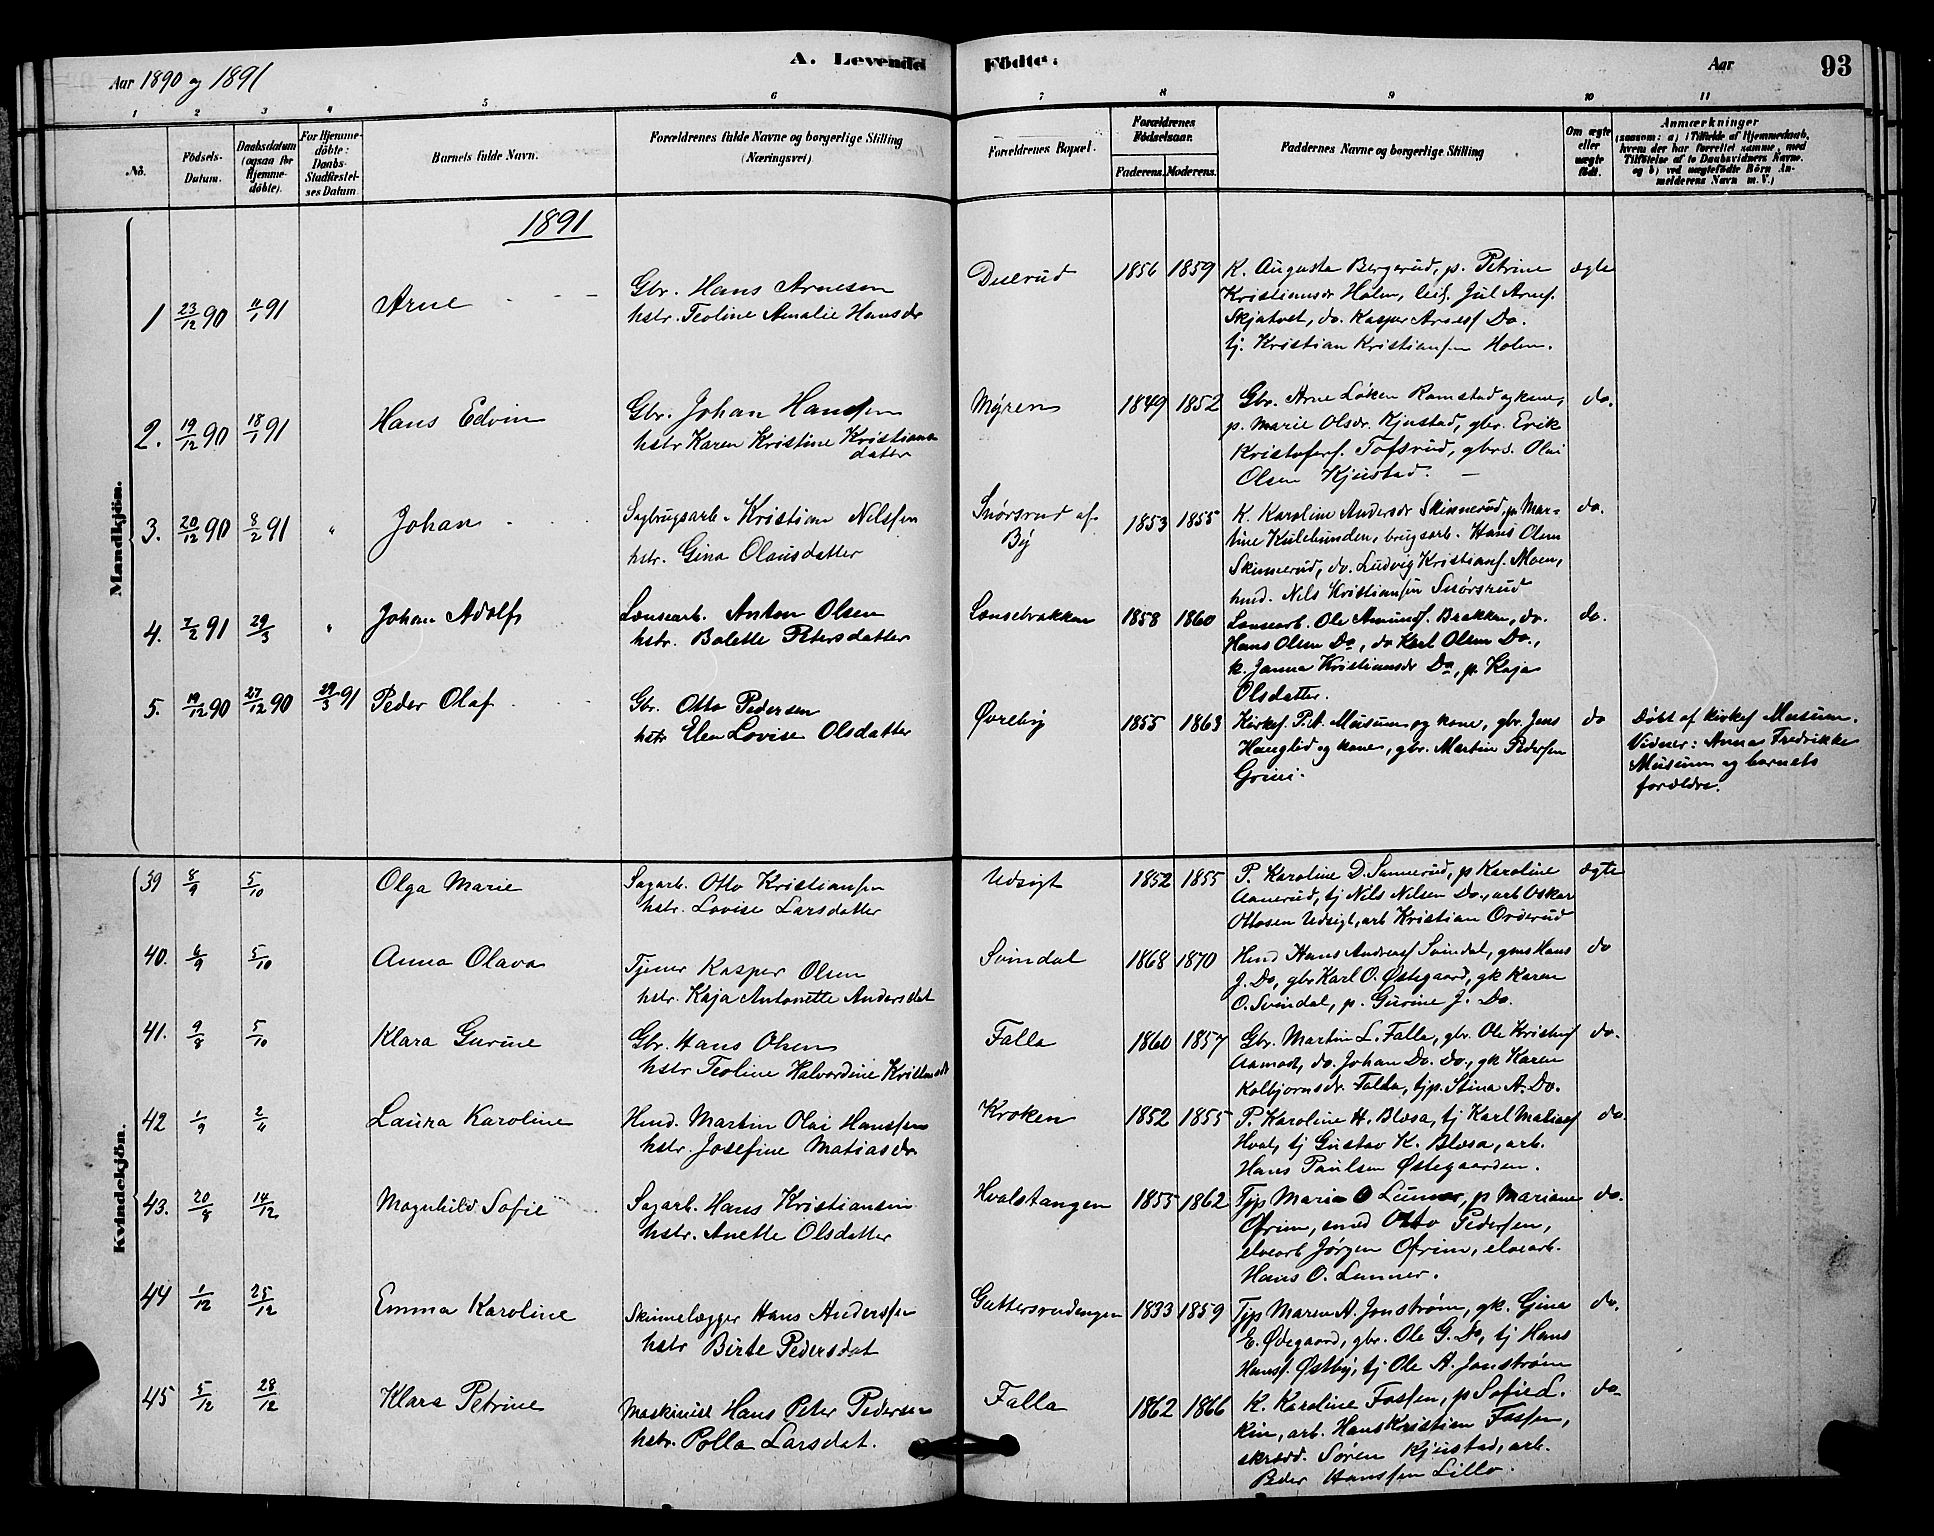 Aar 1890 og 1891
A. Levende Födte.
Aar
93
1 2 3 4 5 6 7 8 9 10 11
No.
Födsels-Datum.
Daabsdatum (ogsaa for Hjemme-döbte).
For Hjemme-döbte: Daabs-Stadfæstel-ses Datum
Barnets fulde Navn.
Forældrenes fulde Navne og borgerlige Stilling (Næringsvei)
Forældrenes Bopæl.
Forældrenes Födselsaar.
Faderens. Moderens.
Faddernes Navne og borgerlige Stilling
Om ægte eller uægte födt.
Anmærkninger
(saasom: a) i Tilfælde af Hjemmedaab, hvem der har forrettet samme, med Tilföielse af to Daabsvidners Navne. og b) ved uægtefödte Börn An-melderens Navn m.V.)
1891
Mandkjön.
1 23/12 90 11/1 91 Arne
Gbr. Hans Arnesen
hstr. Teoline Amalie Hansdr
1856 1859
K. Augusta Bergerud, p. Petrine
Kristiansdr Holm, Jul Arnes.
Skjatvet, do. Kasper Arnes Do.
tj. Kristian Kristiansen Holm.
ægte
2. 19/12 90 18/1 91 Hans Edvin
Gbr. Johan Hanssen
hstr Karen Kristine Kristians
datter
Mýren 1849 1852
Gbr. Arne Løken Ramstad og kone,
p. Marie Olsdr. Kjustad, gbr. Erik
Kristofers. Tofsrud, gbrs. Olai
Olsen Kjustad.
do.
3. 20/12 90 8/2 91 " Johan
Sagbrugsarb. Kristian Nilssen
hstr. Gina Olausdatter
Snørsrud af
Bý
1853 1855
K. Karoline Andersdr Skinnerud, p. Mar-
tine Kulehunden, brugsarb. Hans Olsen
Skinnerud, do. Ludvig Kristians. Moen,
hmd. Nils Kristiansen Snørsrud
do.
4. 7/2 91 29/3 " Johan Adolf
Lænsearb. Anton Olsen
hstr. Bolette Petersdatter
Lænsebrakken 1858 1860
Lænsearb. Ole Amunds. Brakken, do.
Hans Olsen Do, do Karl Olsen Do.,
k. Janna Kristiansdr Do, p. Kaja
Olsdatter.
do.
5. 19/12 90 27/12 90 29/3 91 Peder Olaf
Gbr. Otto Pedersen
hstr Elen Lovise Olsdatter
Øvrebý 1855 1863
Kirkes. P. A. Musum og kone, gbr. Jens
Hauglid og kone, gbr. Martin Pedersen
Grini.
do
Døbt af kirkes. Musum.
Vidner: Anna Fredrikke
Musum og barnets
forældre.
Kvindekjön.
39 8/9 5/10 Olga Marie
Sagarb. Otto Kristiansen
hstr. Lovise Larsdatter
Udsigt 1852 1855
P. Karoline D. Sannerud, p Karoline
Aanerud, tj Nils Nelsen Do., arb Oskar
Ottosen Udsigt, arb Kristian Orderud
ægte
40. 6/9 5/10 Anna Olava
Tjener Kasper Olsen
hstr. Kaja Antonette Andersdat
Svindal 1868 1870
Hmd Hans Andreas Svindal, gms Hans
J. Do, gbr Karl O. Østegaard, gk Karen
O. Svindal, p. Gurine J. Do.
do
41. 9/8 5/10 Klara Gurine
Gbr. Hans Olsen
hstr Teoline Halvardine
Falla 1860 1857
Gbr. Martin L. Falla, gbr. Ole
Aamot, do. Johan Do. Do., gk Karen
Kolbjørnsdr. Falla, tjp. Stina A. Do.
do.
42 1/9 2/11 Laura Karoline
Hmd. Martin Olai Hanssen
hstr. Josefine Matiasdr.
Kroken 1852 1855
P. Karoline H. Blæsa, tj Karl Matiass
Hval, tj Gustav K. Blæsa, arb.
Hans Paulsen Østegaarden.
do
43. 20/8 14/12 Magnhild Sofie
Sagarb. Hans Kristiansen
hstr. Anette Olsdatter
Hvalstangen 1855 1862
Tjp Marie O Lunner, p Mariane
Ofrim, smed Otto Pedersen,
elvearb Jørgen Ofrim, elvearb.
Hans O. Lunner.
do.
44 1/12 25/12 Emma Karoline
Skinnelægger Hans Anderssen
hstr Birte Pedersdat
Guttersrudengen 1833 1859
Tjp Maren A. Jonstrøm, gk. Gina
E. Ødegaard, gbr. Ole G. Do, tj Hans
Hans. Østby, tj Ole A. Jonstrøm
do.
45 5/12 28/12 Klara Petrine
Maskinist Hans Peter Pedersen
hstr. Polla Larsdat.
Falla 1862 1866
K. Karoline Fossen, p Sofie L.
Kin, arb. Hans Kristian Fossen,
skræd. Søren Kjustad, arb.
Peder Hanssen Lillo.
do.